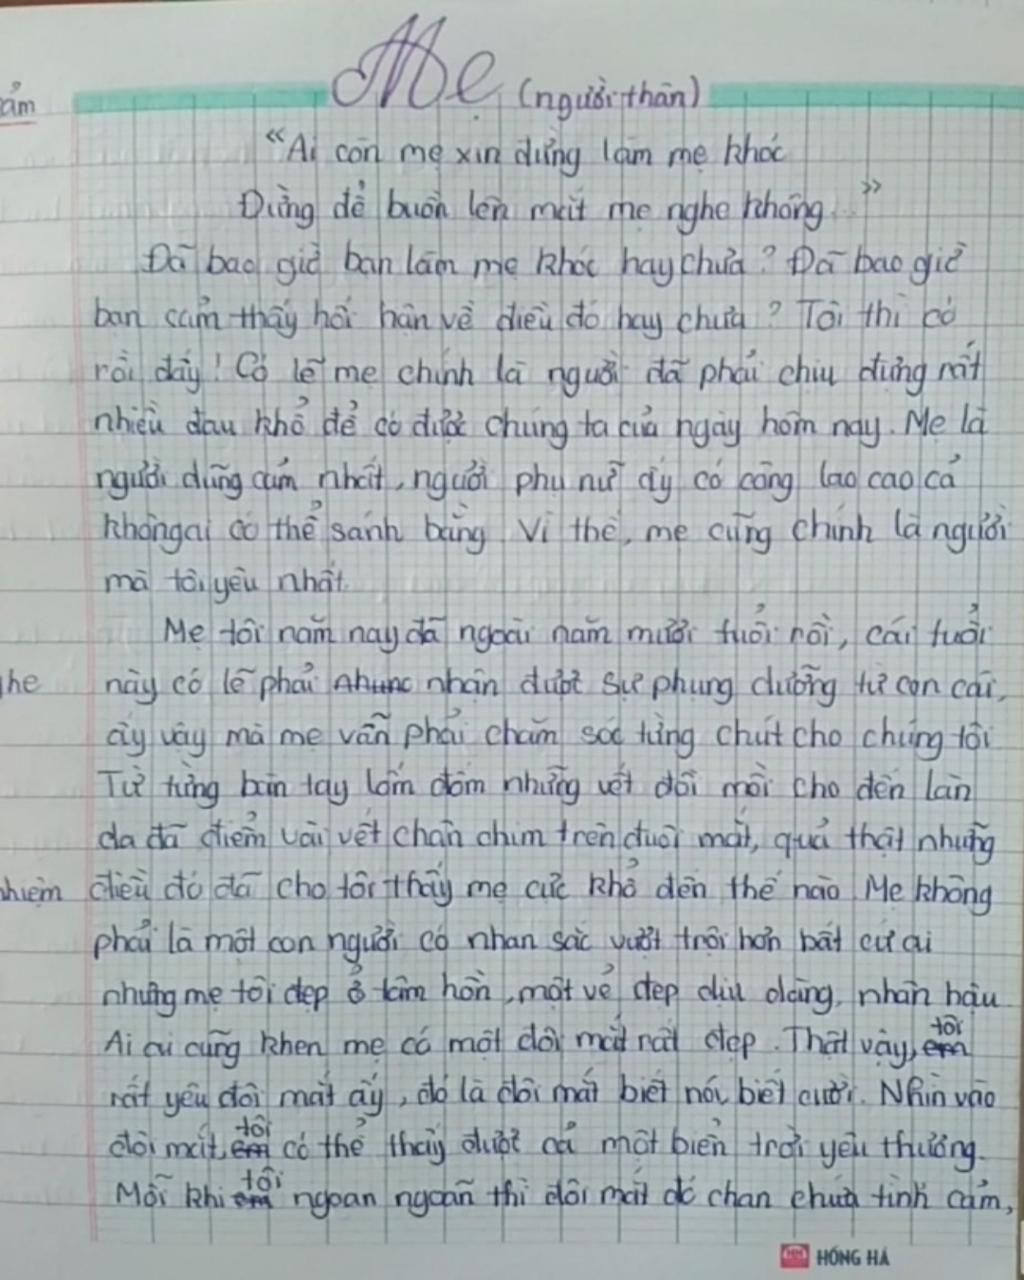 Mẹ (người thân)
"Ai còn mẹ xin đừng làm mẹ khóc
Đừng để buồn lên mắt mẹ nghe không"
Đã bao giờ bạn làm mẹ khóc hay chưa? Đã bao giờ
bạn cảm thấy hối hận về điều đó hay chưa? Tôi thì có
rồi đấy! Có lẽ mẹ chính là người đã phải chịu đựng rất
nhiều đau khổ để có được chúng ta của ngày hôm nay. Mẹ là
người dũng cảm nhất, người phụ nữ ấy có công lao cao cả
không ai có thể sánh bằng. Vì thế, mẹ cũng chính là người
mà tôi yêu nhất.
Mẹ tôi năm nay đã ngoài năm mươi tuổi rồi, cái tuổi
này có lẽ phải nhận được sự phụng dưỡng từ con cái,
ấy vậy mà mẹ vẫn phải chăm sóc từng chút cho chúng tôi
Từ từng bàn tay lốm đốm những vết đồi mồi cho đến làn
da đã điểm vài vết chân chim trên đuôi mắt, quả thật những
điều đó đã cho tôi thấy mẹ cực khổ đến thế nào. Mẹ không
phải là một con người có nhan sắc vượt trội hơn bất cứ ai
nhưng mẹ tôi đẹp ở tâm hồn, một vẻ đẹp dịu dàng, nhân hậu
Ai ai cũng khen mẹ có một đôi mắt rất đẹp. Thật vậy, tôi
rất yêu đôi mắt ấy, đó là đôi mắt biết nói, biết cười. Nhìn vào
đôi mắt, tôi có thể thấy được cả một biển trời yêu thương.
Mỗi khi tôi ngoan ngoãn thì đôi mắt đó chan chứa tình cảm,
HỒNG HÀ